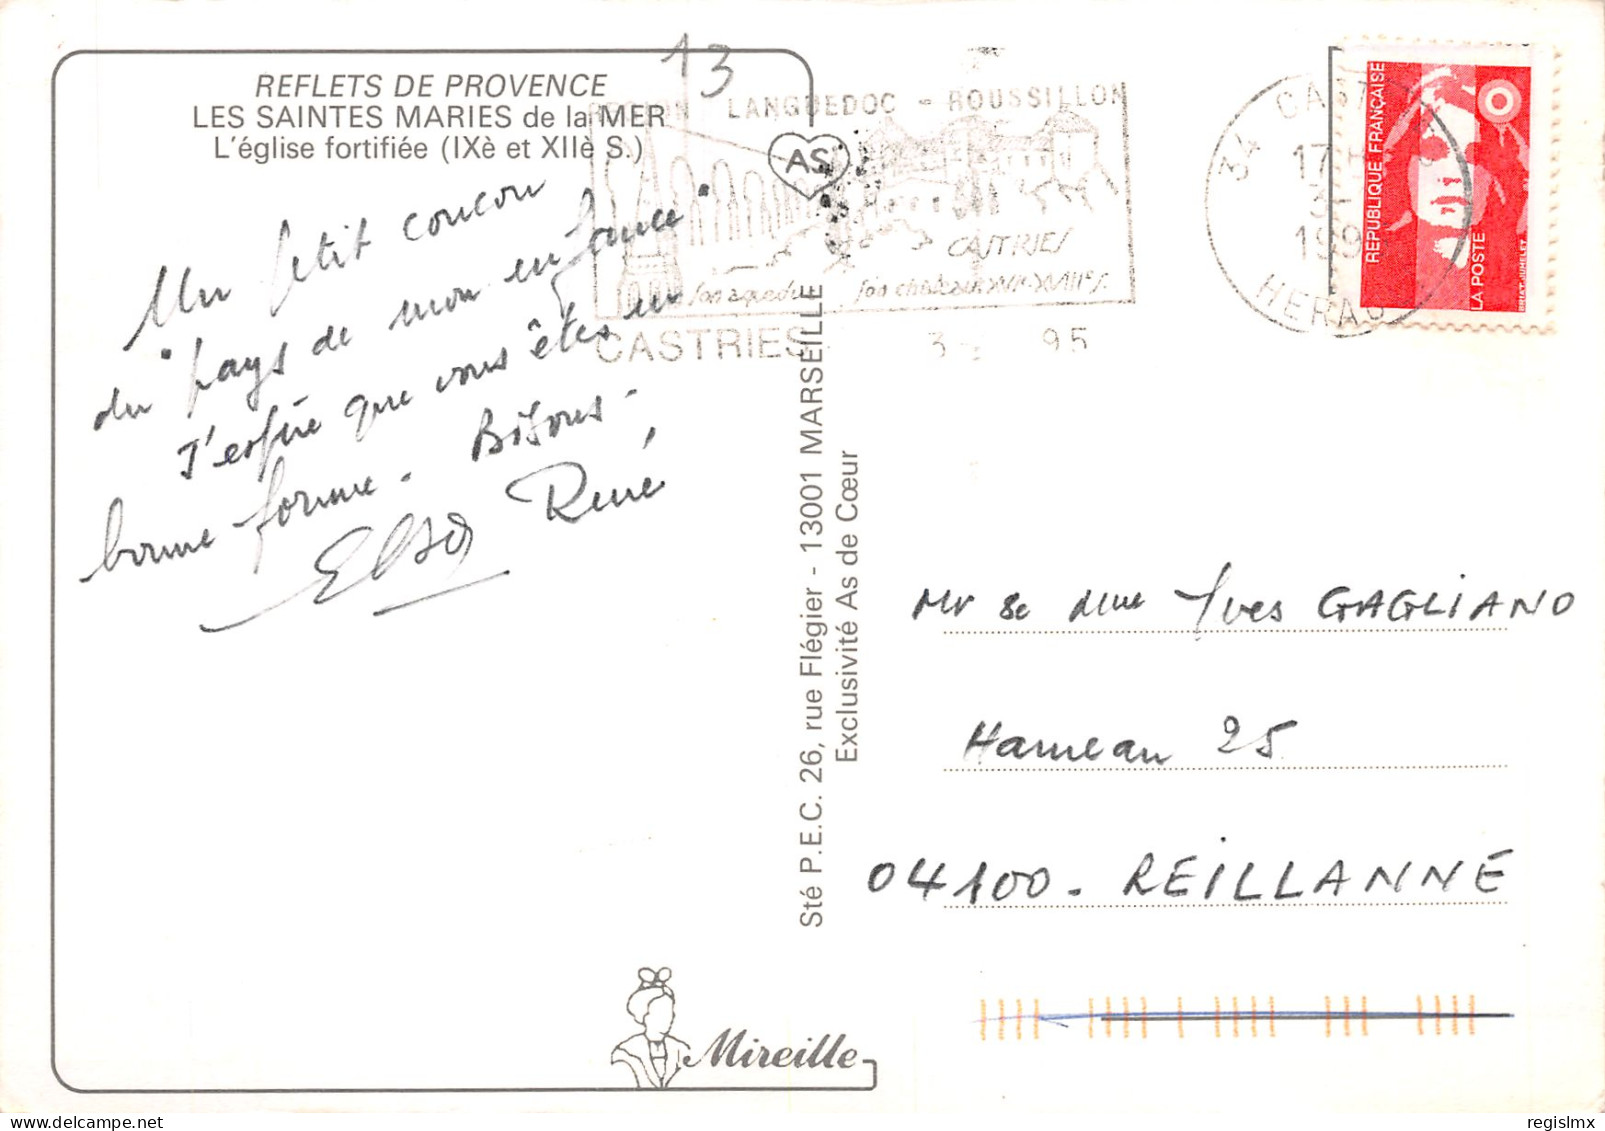 13
REFLETS DE PROVENCE
LES SAINTES MARIES de la MER
L'église fortifiée (IXè et XIIè S.)
AS
Un petit coucou
du "pays de mon enfance"
J'espère que vous êtes en
bonne forme - Bisous -
Elsa René
REGION LANGUEDOC - ROUSSILLON
CASTRIES
son aqueduc son château XVI-XVIIIe s.
CASTRIES 3 - 95
34 CAST
17 H
3 -
199
HERAU
REPUBLIQUE FRANÇAISE
LA POSTE
BRIAT-JUMELET
Sté P.E.C. 26, rue Flégier - 13001 MARSEILLE
Exclusivité As de Cœur
Mr & Mme Yves GAGLIANO
Hameau 25
04100 - REILLANNE
Mireille
regislmx